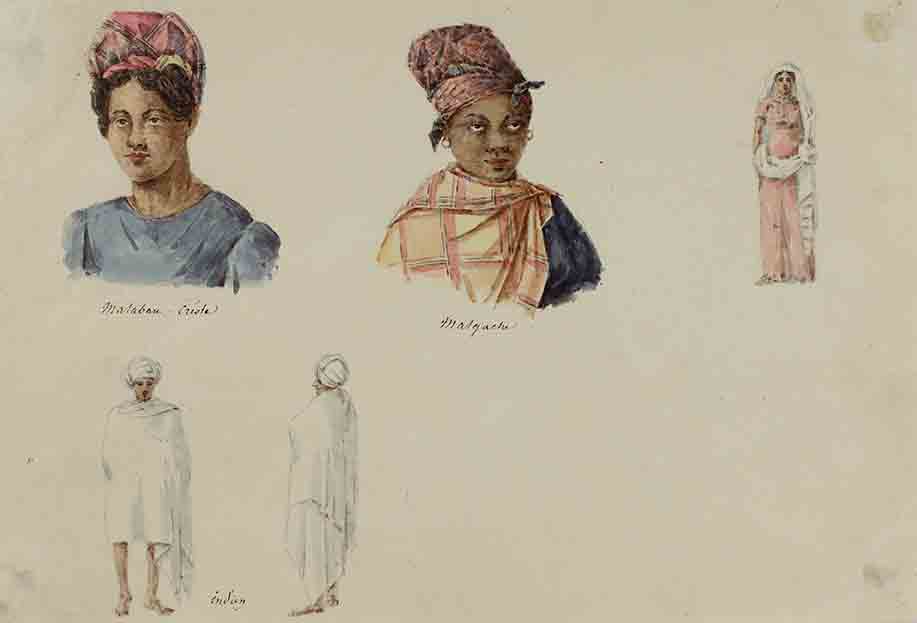 Malabar - Créole
Malgache
indian